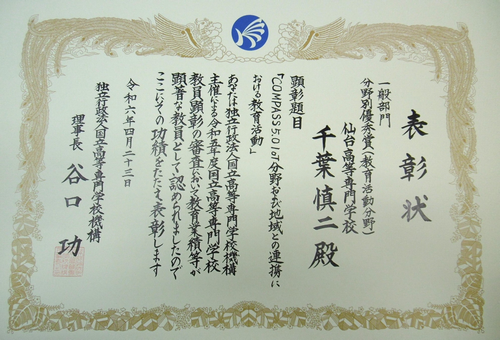 表彰状
一般部門
分野別優秀賞(教育活動分野)
仙台高等専門学校
千葉慎二殿
顕彰題目
「COMPASS5.0IoT分野および地域との連携に
おける教育活動」
あなたは独立行政法人国立高等専門学校機構
主催による令和五年度国立高等専門学校
教員顕彰の審査において教育業績等が
顕著な教員として認められましたので
ここにその功績をたたえ表彰します
令和六年四月二十三日
独立行政法人国立高等専門学校機構
理事長 谷口功